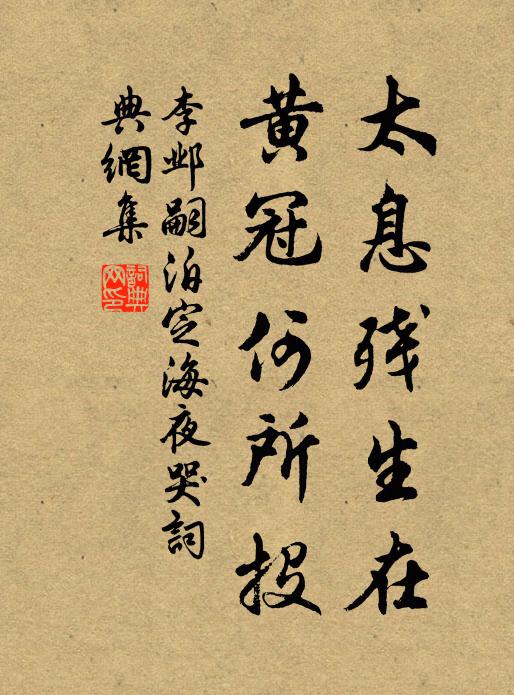 太息残生在
黄冠何所投
李邺嗣泊定海夜哭詞
典網集
詞典網印